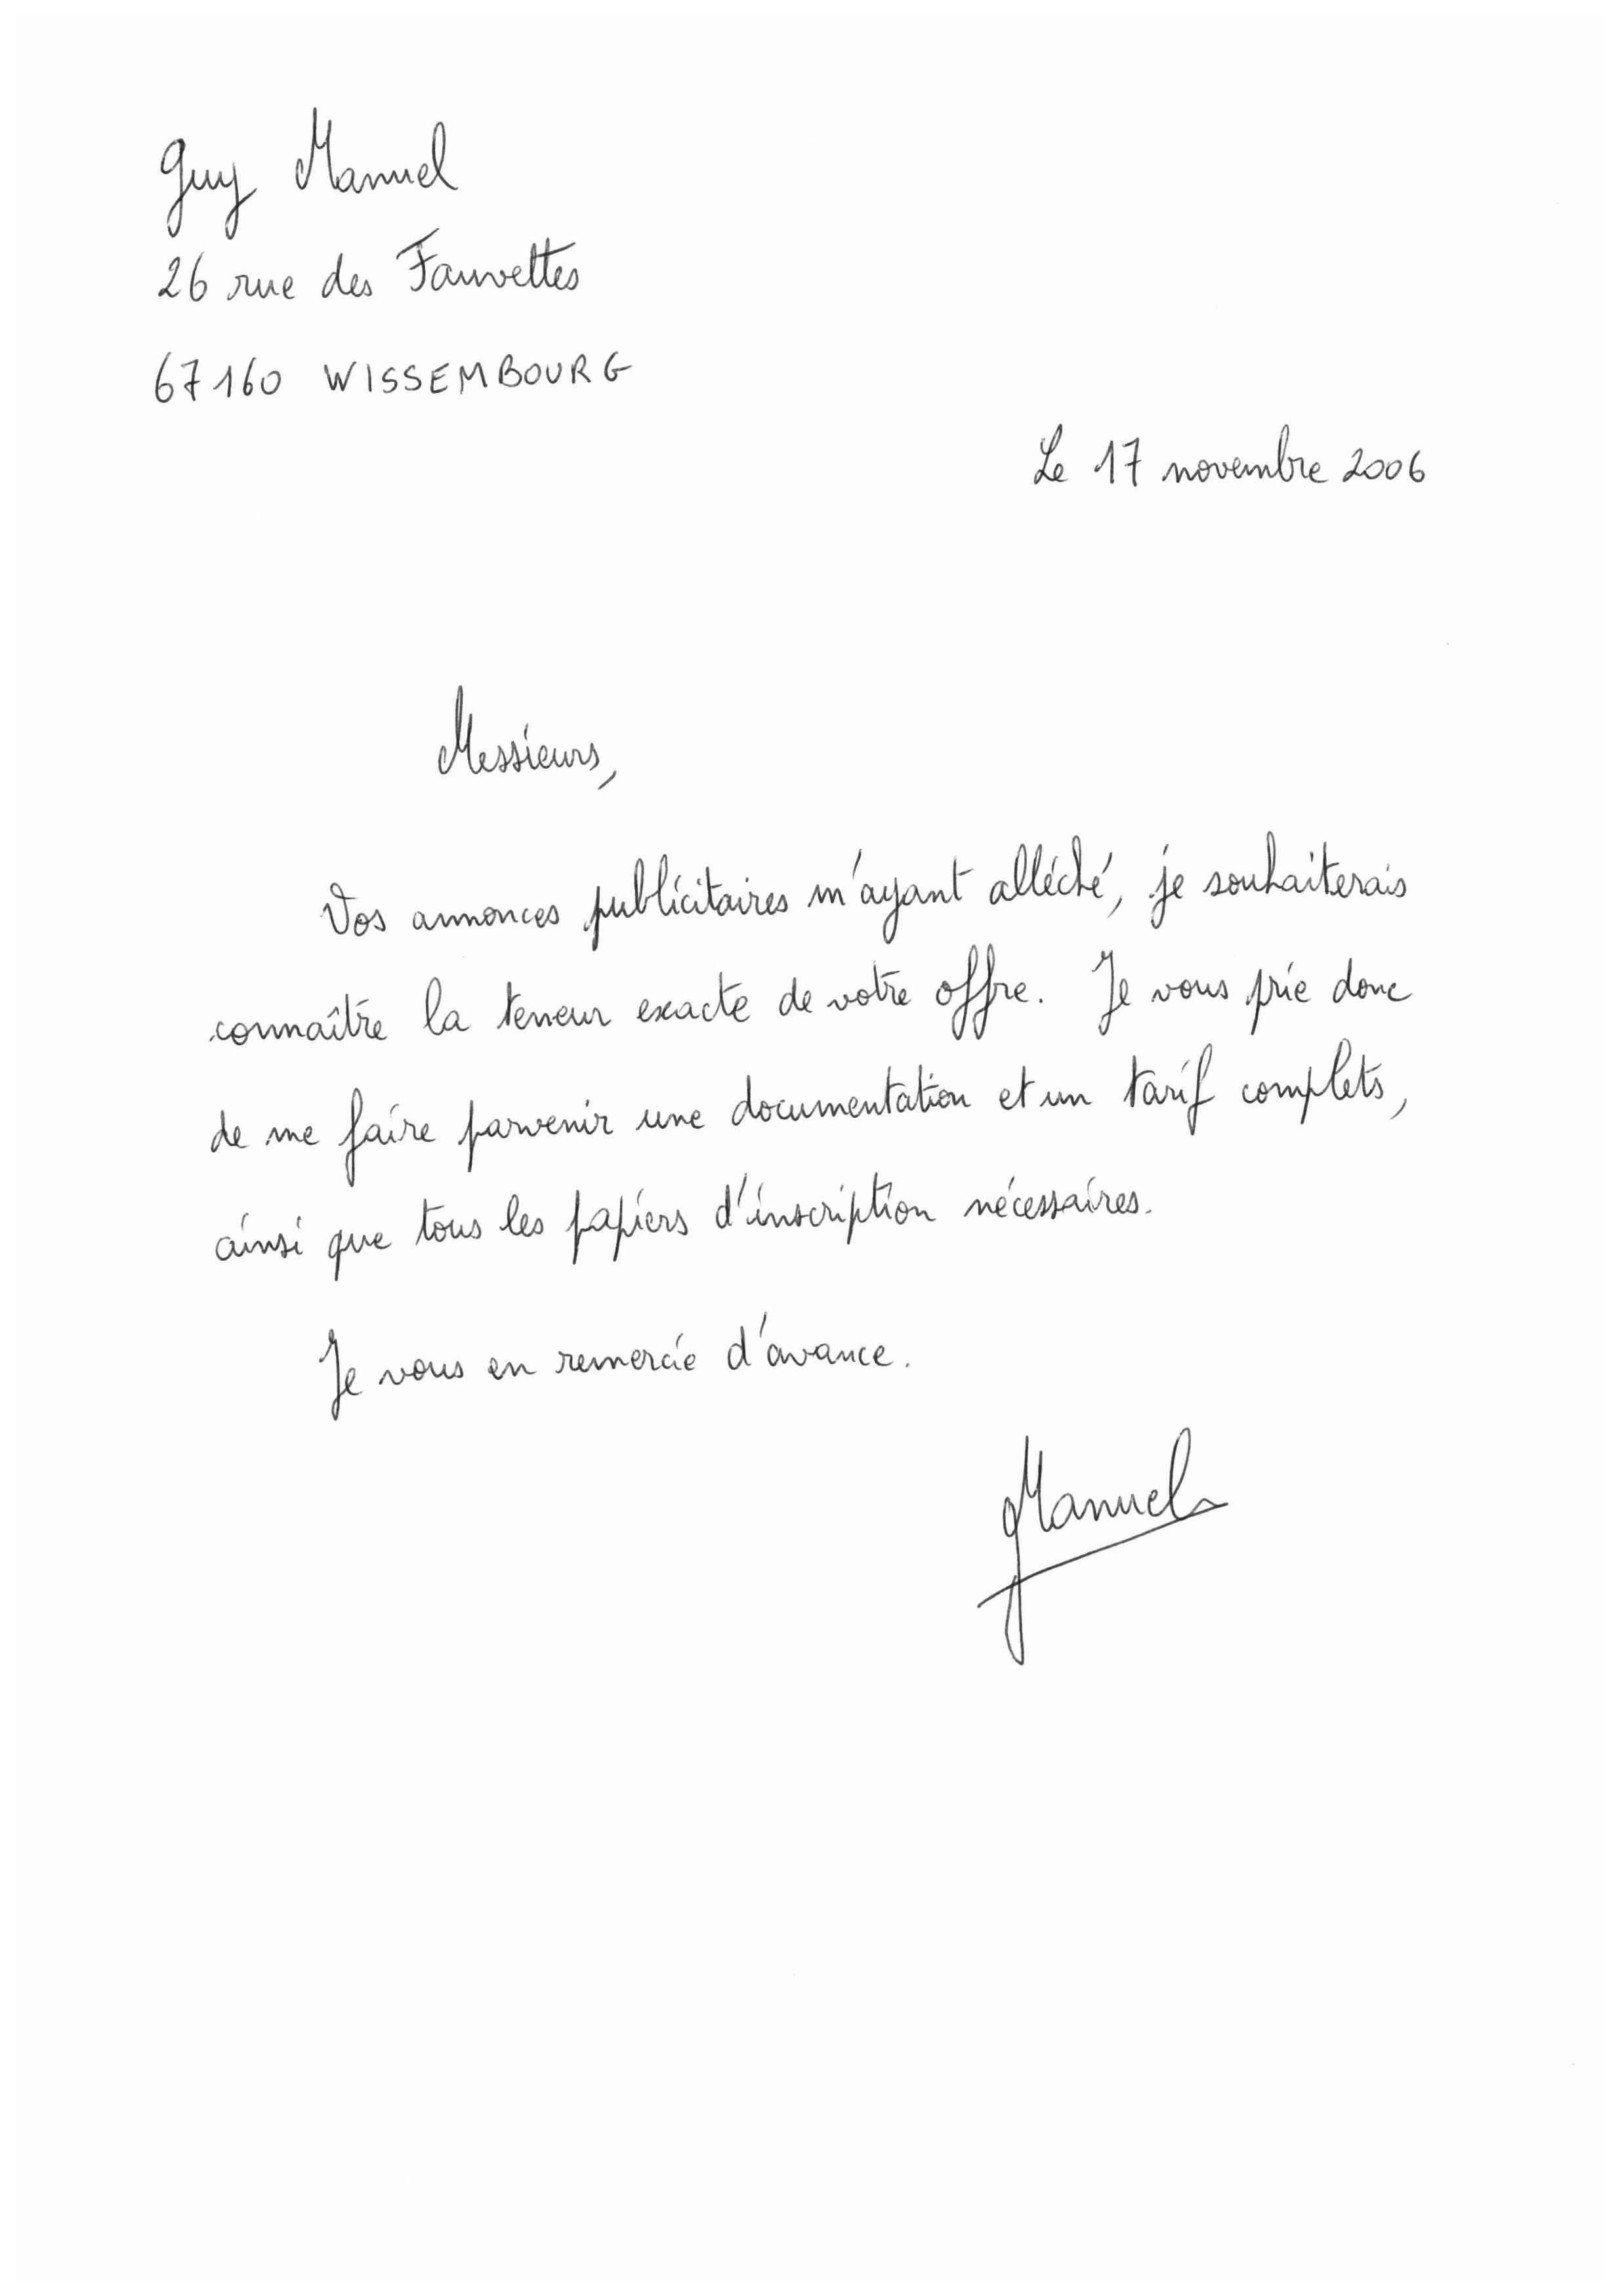 Guy Manuel
26 rue des Fauvettes
67160 WISSEMBOURG
Le 17 novembre 2006
Messieurs,
Vos annonces publicitaires m'ayant alléché, je souhaiterais
connaître la teneur exacte de votre offre. Je vous prie donc
de me faire parvenir une documentation et un tarif complets,
ainsi que tous les papiers d'inscription nécessaires.
Je vous en remercie d'avance.
Manuel